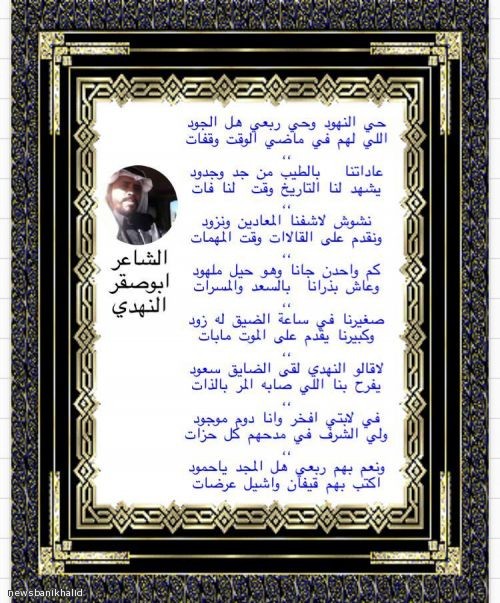 حي النهود وحي ربعي هل الجود
اللي لهم في ماضي الوقت وقفات
،،
عاداتنا بالطيب من جد وجدود
يشهد لنا التاريخ وقت لنا فات
،،
نشوش لاشفنا المعادين ونزود
ونقدم على القالات وقت المهمات
،،
كم واحدن جانا وهو حيل ملهود
وعاش بذرانا بالسعد والمسرات
،،
صغيرنا في ساعة الضيق له زود
وكبيرنا يقدم على الموت مابات
،،
لاقالو النهدي لقى الضايق سعود
يفرح بنا اللي صابه المر بالذات
،،
في لابتي افخر وانا دوم موجود
ولي الشرف في مدحهم كل حزات
،،
ونعم بهم ربعي هل المجد ياحمود
اكتب بهم قيفان واشيل عرضات
الشاعر
ابوصقر
النهدي
newsbanikhalid